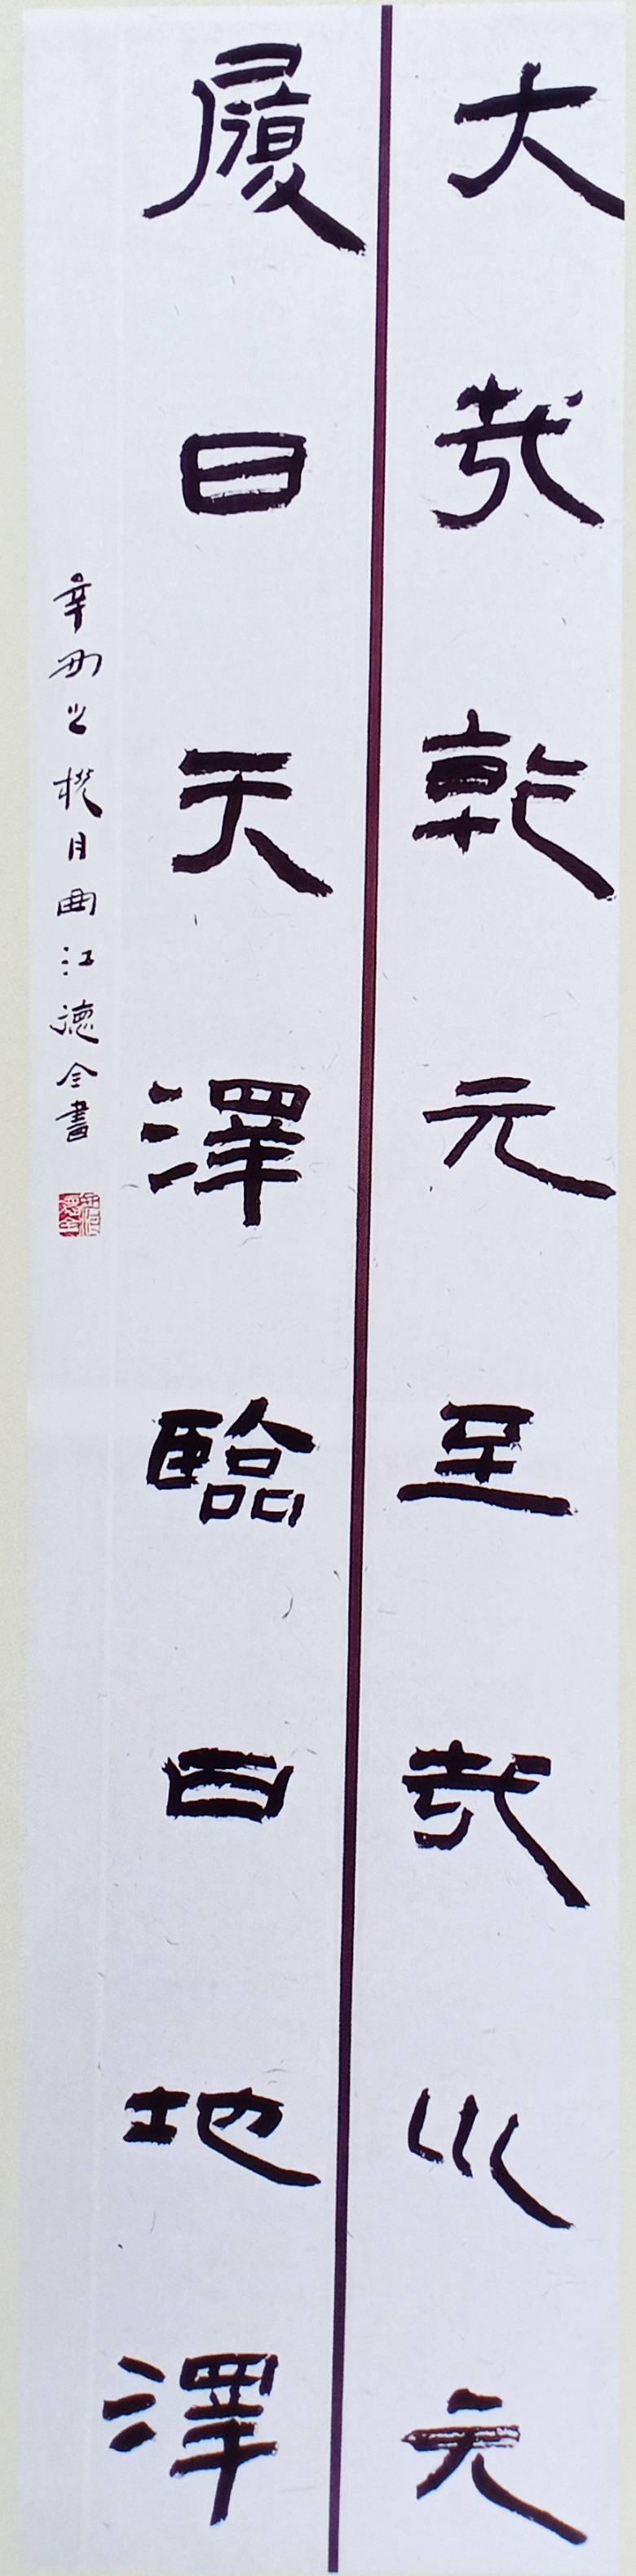 大哉乾元至哉巛元
履曰天澤臨曰地澤
辛丑之槐月曲江德全書